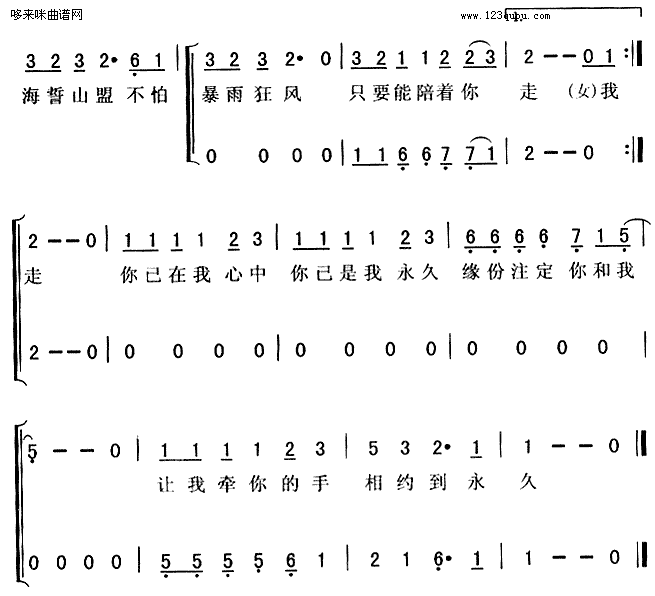 哆来咪曲谱网
www.123qupu.com
3 2 3 2· 6 1 | 3 2 3 2· 0 | 3 2 1 1 2 2 3 | 2 – – 0 1 :|
海誓山盟不怕 暴雨狂风 只要能陪着你 走 (女)我
0 0 0 0 | 1 1 6 6 7 7 1 | 2 – – 0 :|
2 – – 0 | 1 1 1 1 2 3 | 1 1 1 1 2 3 | 6 6 6 6 7 1 5
走 你已在我心中 你已是我永久 缘份注定你和我
2 – – 0 | 0 0 0 0 | 0 0 0 0 | 0 0 0 0
5 – – 0 | 1 1 1 1 2 3 | 5 3 2· 1 | 1 – – 0 ‖
让我牵你的手 相约到永久
0 0 0 0 | 5 5 5 5 6 1 | 2 1 6· 1 | 1 – – 0 ‖